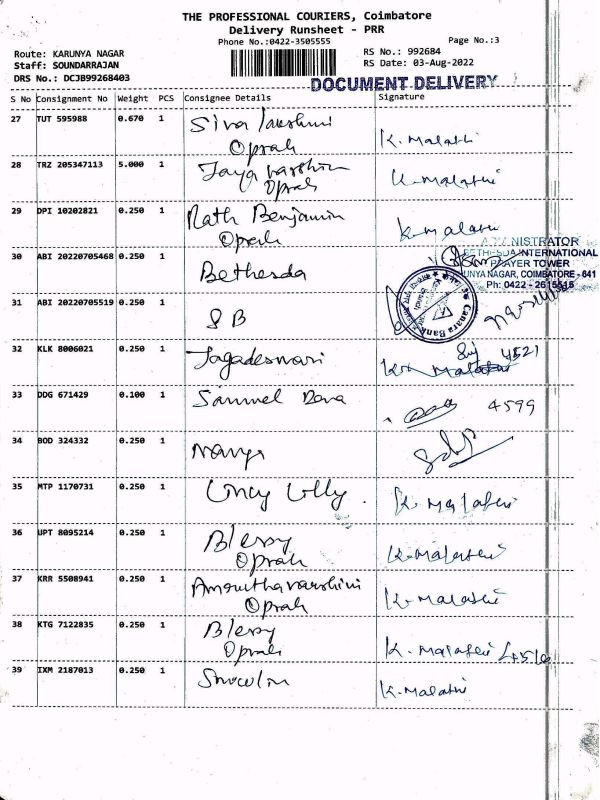 THE PROFESSIONAL COURIERS, Coimbatore
Delivery Runsheet - PRR
Phone No.:0422-3505555
Page No.:3
Route: KARUNYA NAGAR
RS No.: 992684
Staff: SOUNDARRAJAN
RS Date: 03-Aug-2022
DRS No.: DCJB99268403
DOCUMENT DELIVERY
S No Consignment No Weight PCS Consignee Details Signature
27 TUT 595988 0.670 1 Siva lakshmi K. Malathi
Oprah
28 TRZ 205347113 5.000 1 Jaya varshin K. Malathi
Oprah
29 DPI 10202821 0.250 1 Nath Benjamin K. Malathi
Oprah
ADMINISTRATOR
BETHESDA INTERNATIONAL
PRAYER TOWER
KARUNYA NAGAR, COIMBATORE - 641
Ph: 0422 - 2615516
30 ABI 20220705468 0.250 1 Bethesda
Canara Bank
31 ABI 20220705519 0.250 1 S B
32 KLK 8006021 0.250 1 Jagadeswari K. Malathi 4521
33 DDG 671429 0.100 1 Samuel Dana 4599
34 BOD 324332 0.250 1 Navya
35 MTP 1170731 0.250 1 Lincy Lilly K. Malathi
36 UPT 8095214 0.250 1 Blessy K. Malathi
Oprah
37 KRR 5508941 0.250 1 Amruthavarshini K. Malathi
Oprah
38 KTG 7122835 0.250 1 Blessy K. Malathi 4516
Oprah
39 IXM 2187013 0.250 1 K. Malathi